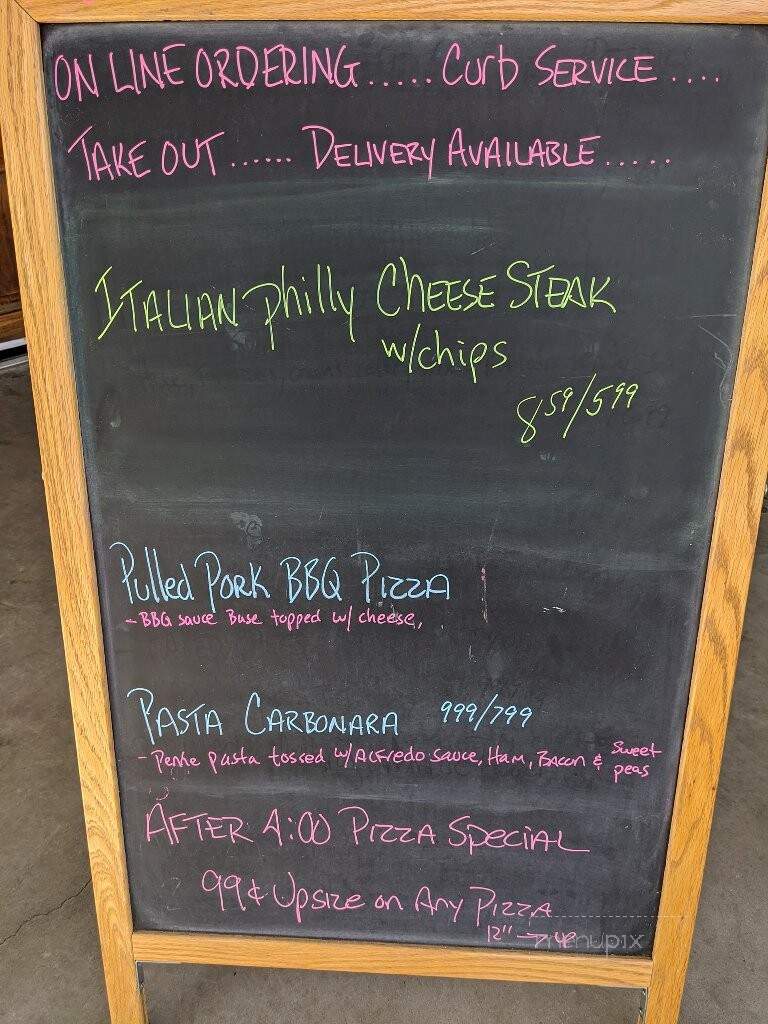 ON LINE ORDERING..... Curb SERVICE....
TAKE OUT...... DELIVERY AVAILABLE.....
ITALIAN philly CHEESE STEAK
w/chips
8 59/5 99
Pulled PORK BBQ PIZZA
- BBQ sauce Base topped w/ cheese,
PASTA CARBONARA 999/799
- Penne pasta tossed w/ ALFredo sauce, HAM, BACON & Sweet
peas
AFTER 4:00 PIZZA SPECIAL
99¢ Upsize on Any PIZZA
12" → up
menupix